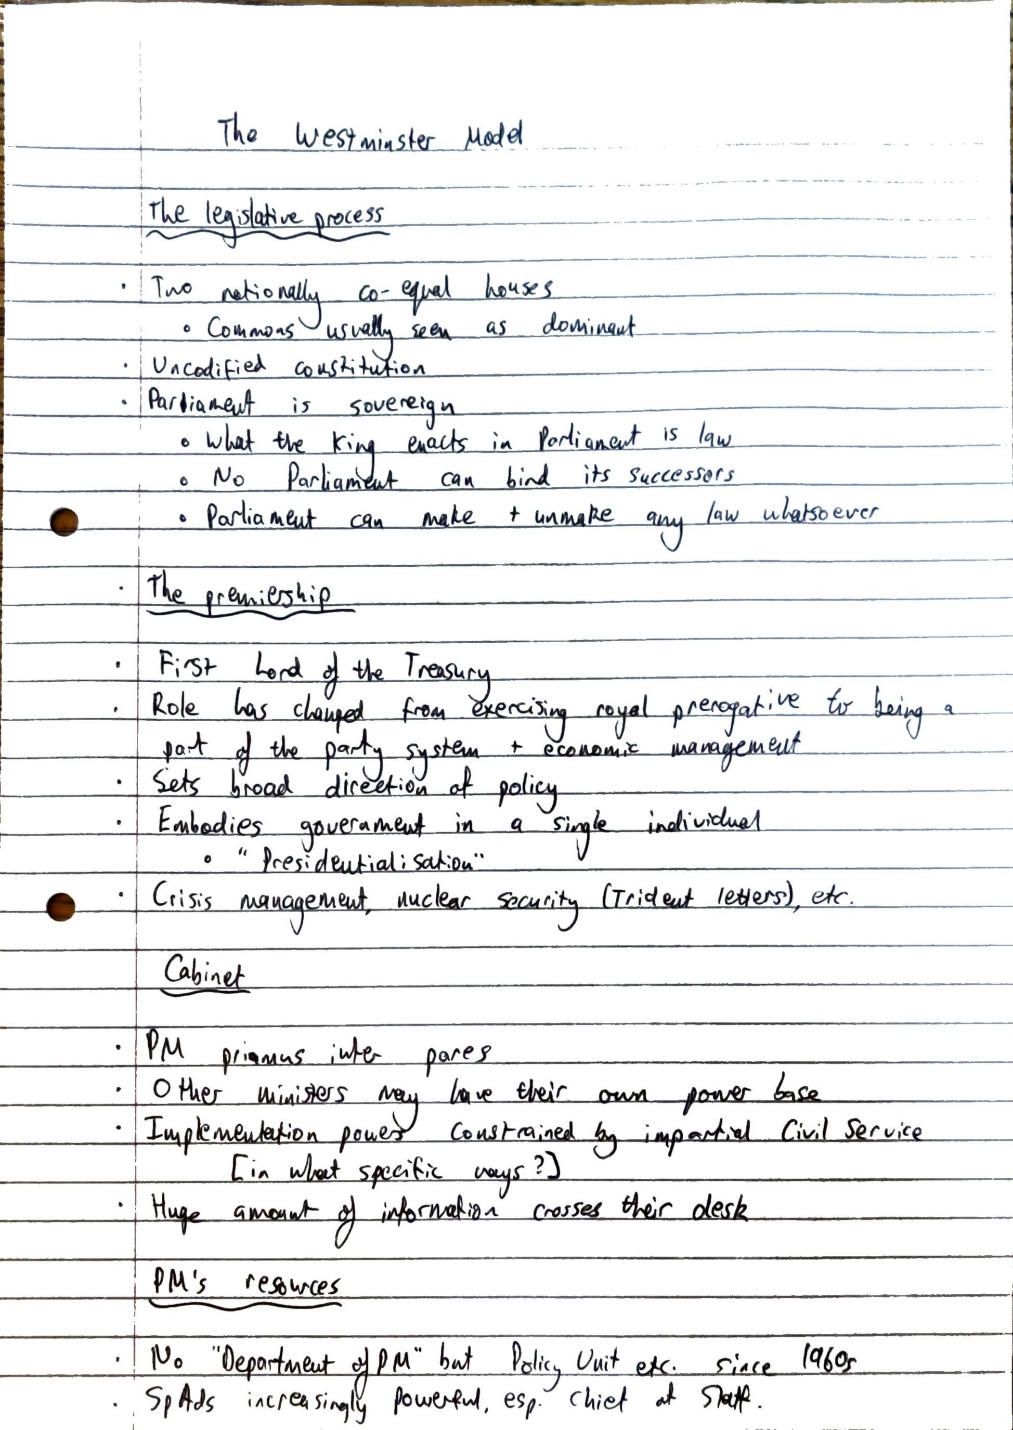 The Westminster Model
The legislative process
· Two notionally co-equal houses
∘ Commons usually seen as dominant
· Uncodified constitution
· Parliament is sovereign
∘ What the King enacts in Parliament is law
∘ No Parliament can bind its successors
∘ Parliament can make + unmake any law whatsoever
· The premiership
· First Lord of the Treasury
· Role has changed from exercising royal prerogative to being a
part of the party system + economic management
· Sets broad direction of policy
· Embodies government in a single individual
∘ "Presidentialisation"
· Crisis management, nuclear security (Trident letters), etc.
Cabinet
· PM primus inter pares
· Other ministers may have their own power base
· Implementation power constrained by impartial Civil Service
[in what specific ways?]
· Huge amount of information crosses their desk
PM's resources
· No "Department of PM" but Policy Unit etc. since 1960s
· SpAds increasingly powerful, esp. Chief of Staff.